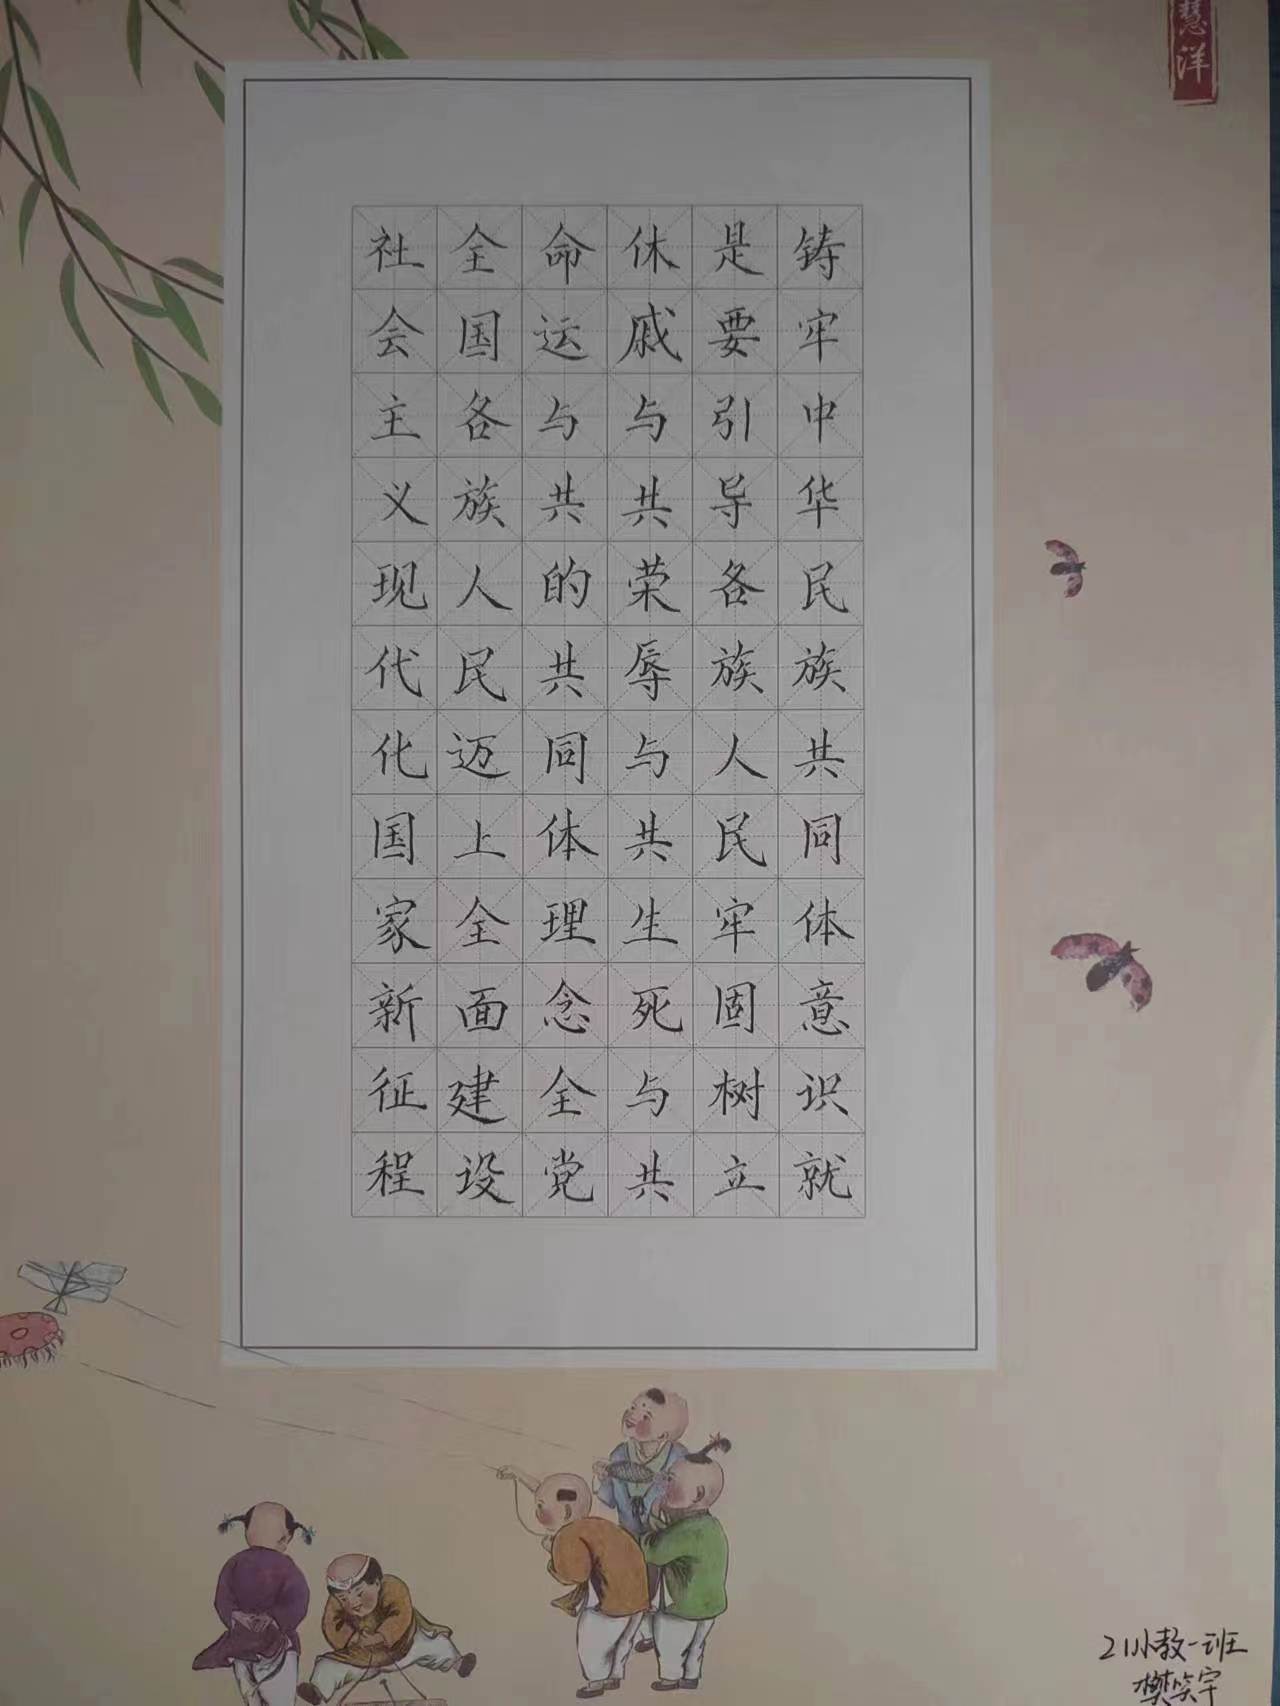 铸牢中华民族共同体意识就
是要引导各族人民牢固树立
休戚与共荣辱与共生死与共
命运与共的共同体理念全党
全国各族人民迈上全面建设
社会主义现代化国家新征程
慧洋
21小教一班
樊笑宇